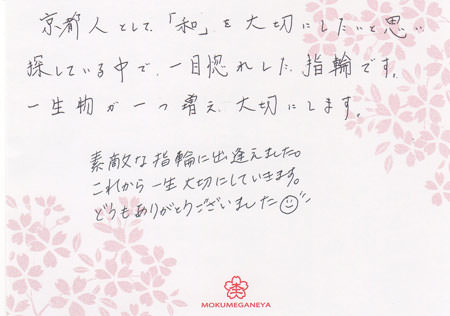 京都人として、「和」を大切にしたいと思い
探している中で、一目惚れした指輪です。
一生物が一つ増え、大切にします。
素敵な指輪に出逢えました。
これから一生大切にしていきます。
どうもありがとうございました
MOKUMEGANEYA